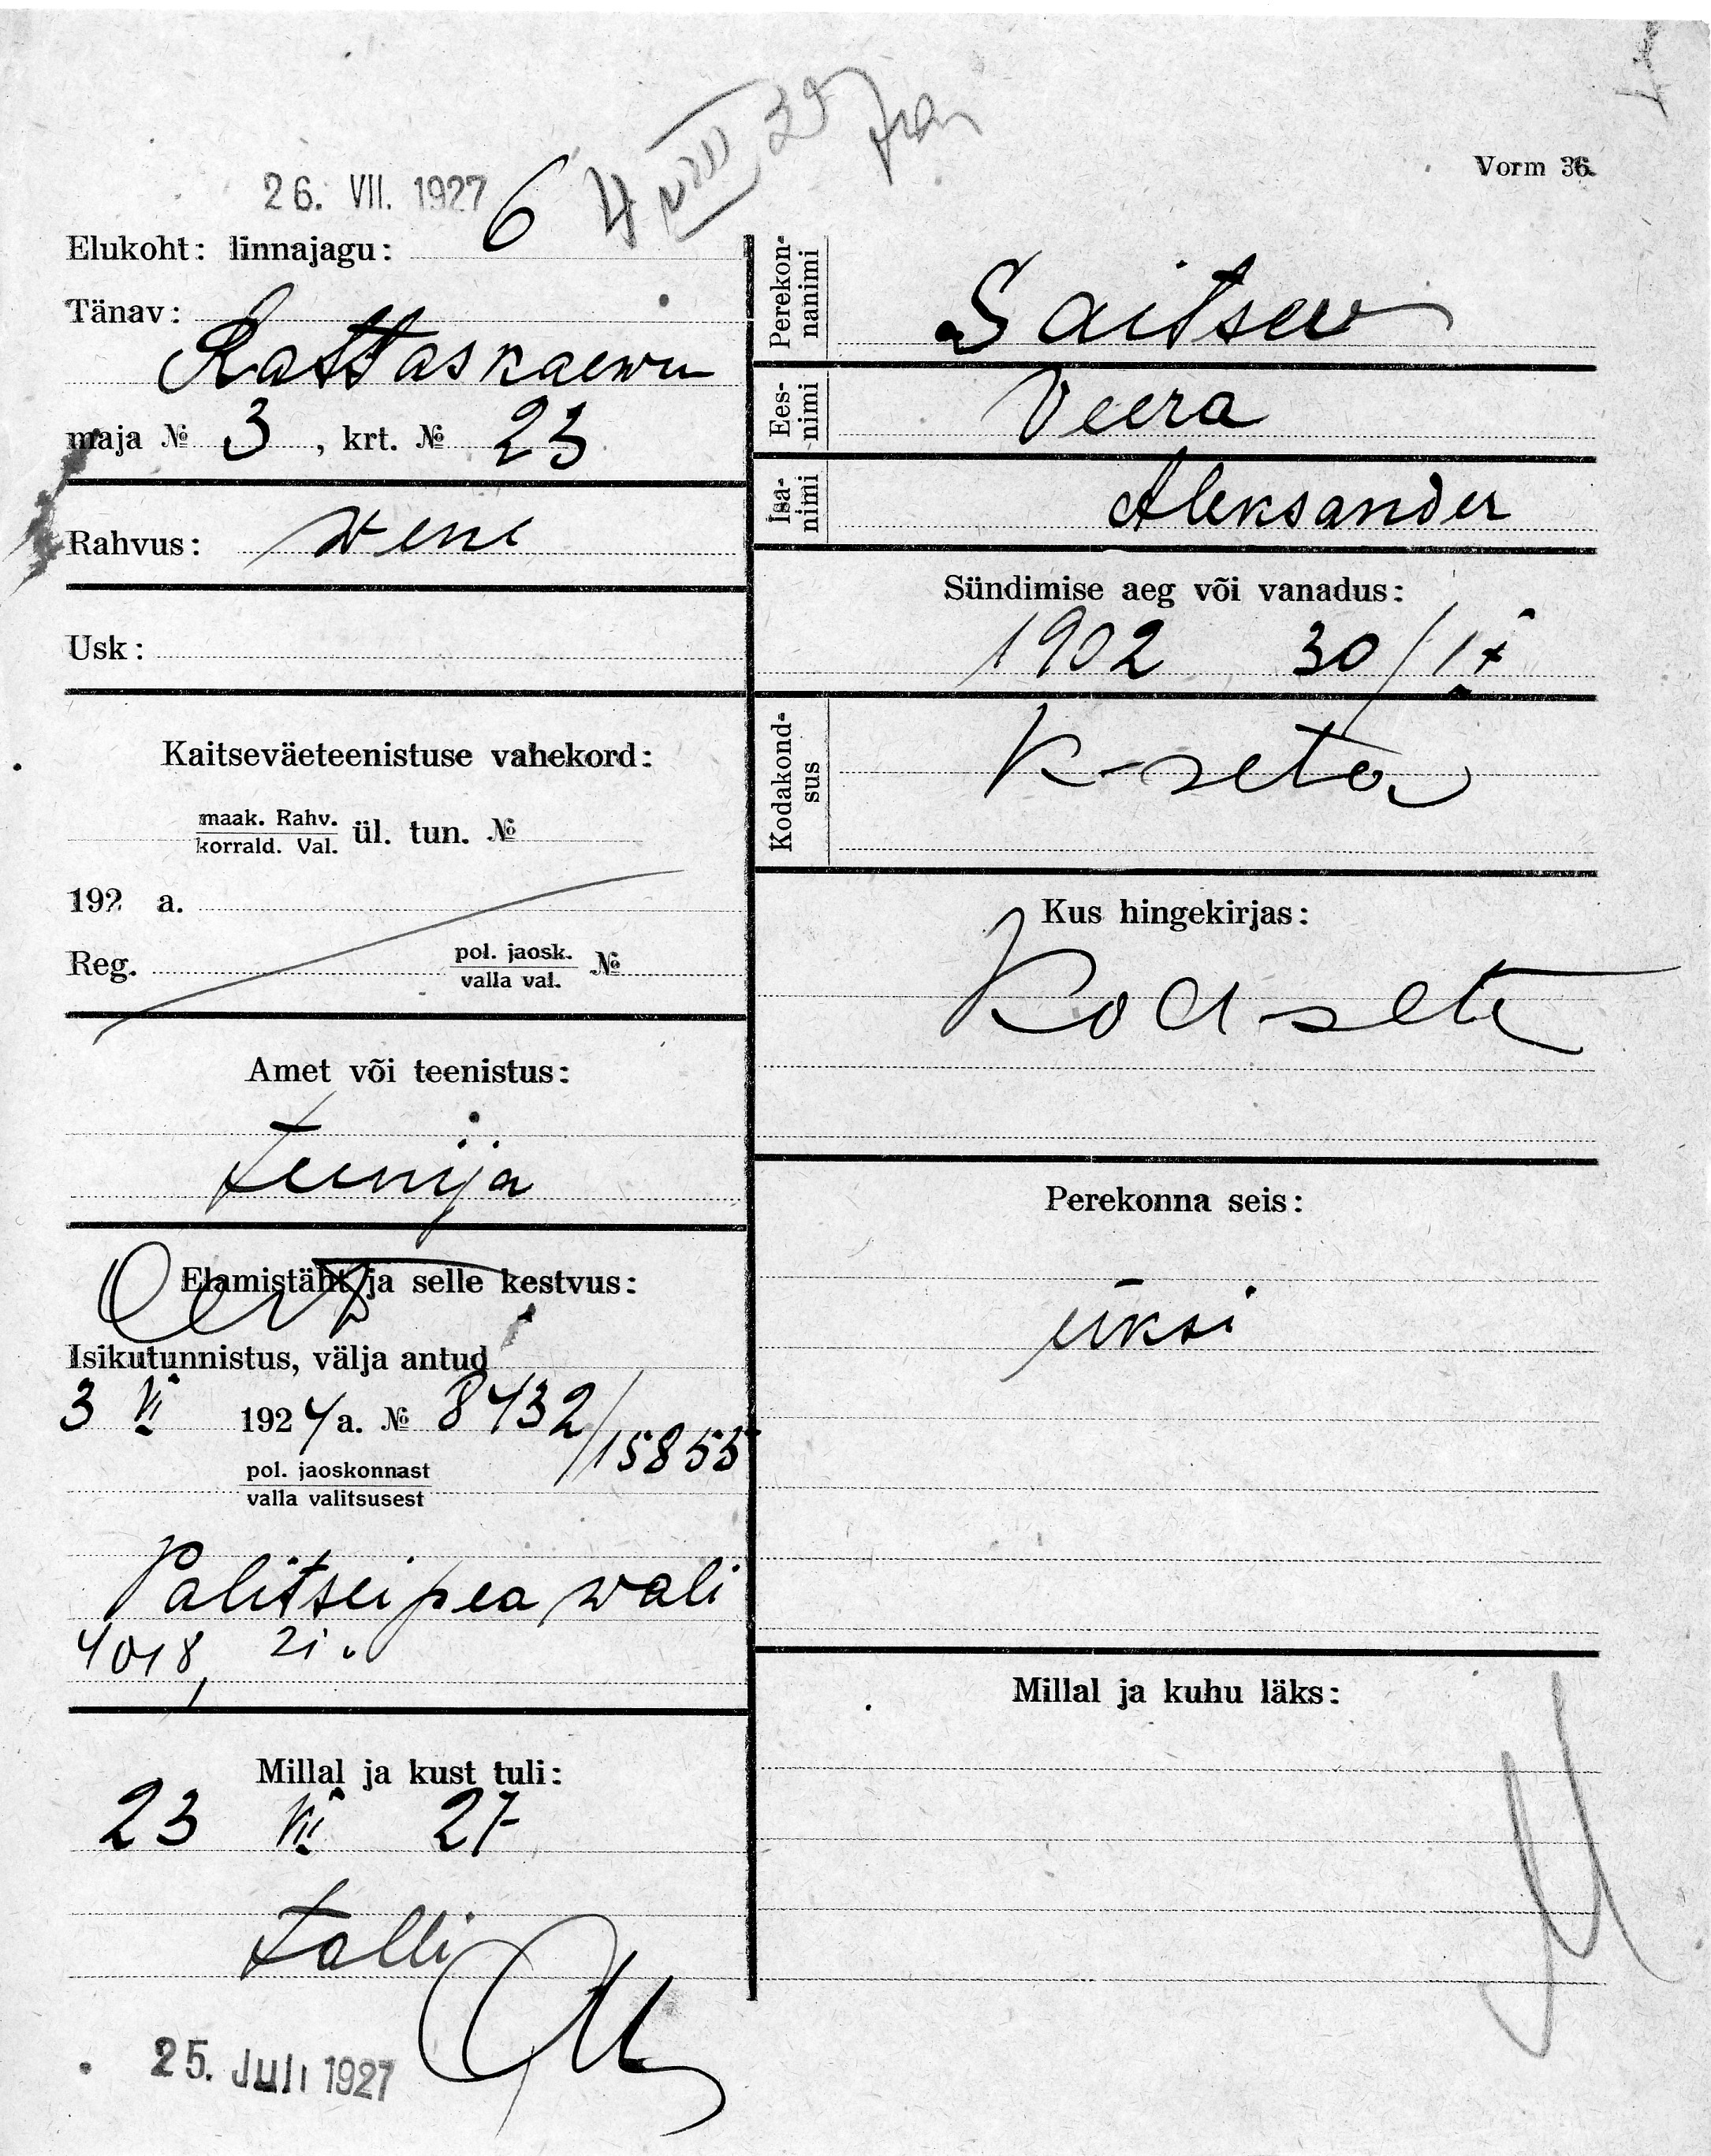 4 VIII 29
Vorm 36.
26. VII. 1927
Elukoht: linnajagu: 6
Tänav:
Rattaskaewu
maja № 3, krt. № 23
Rahvus: wene
Usk:
Kaitseväeteenistuse vahekord:
maak. Rahv.
korrald. Val. ül. tun. №
192 a.
Reg. pol. jaosk.
valla val. №
Amet või teenistus:
teenija
Elamistäht ja selle kestvus:
Isikutunnistus, välja antud
3 VI 1924 a. № 8432/15855
pol. jaoskonnast
valla valitsusest
Palitseipea wali
4018, 21.
Millal ja kust tuli:
23 VII 27
Talli
25. Juli 1927
Perekon-
nanimi
Saitsew
Ees-
nimi
Veera
Isa-
nimi
Aleksander
Sündimise aeg või vanadus:
1902 30/IX
Kodakond-
sus
K-seta
Kus hingekirjas:
Kod seta
Perekonna seis:
üksi
Millal ja kuhu läks: